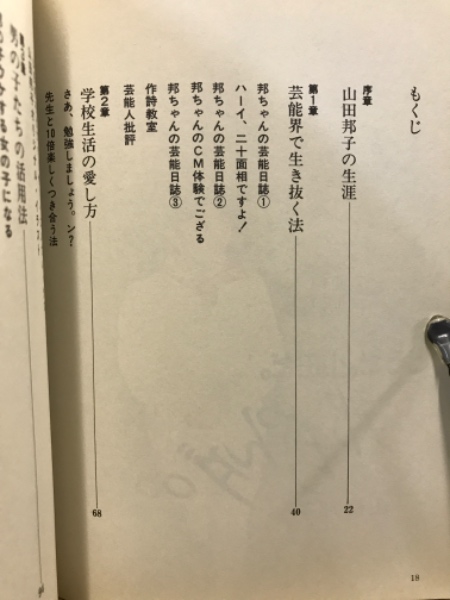 もくじ
序章
山田邦子の生涯
22
第1章
芸能界で生き抜く法
40
邦ちゃんの芸能日誌①
ハーイ、二十面相ですよ!
邦ちゃんの芸能日誌②
邦ちゃんのCM体験でござる
邦ちゃんの芸能日誌③
作詩教室
芸能人批評
第2章
学校生活の愛し方
68
さあ、勉強しましょう。ン?
先生と10倍楽しくつき合う法
男の子たちの活用法
する女の子になる
18